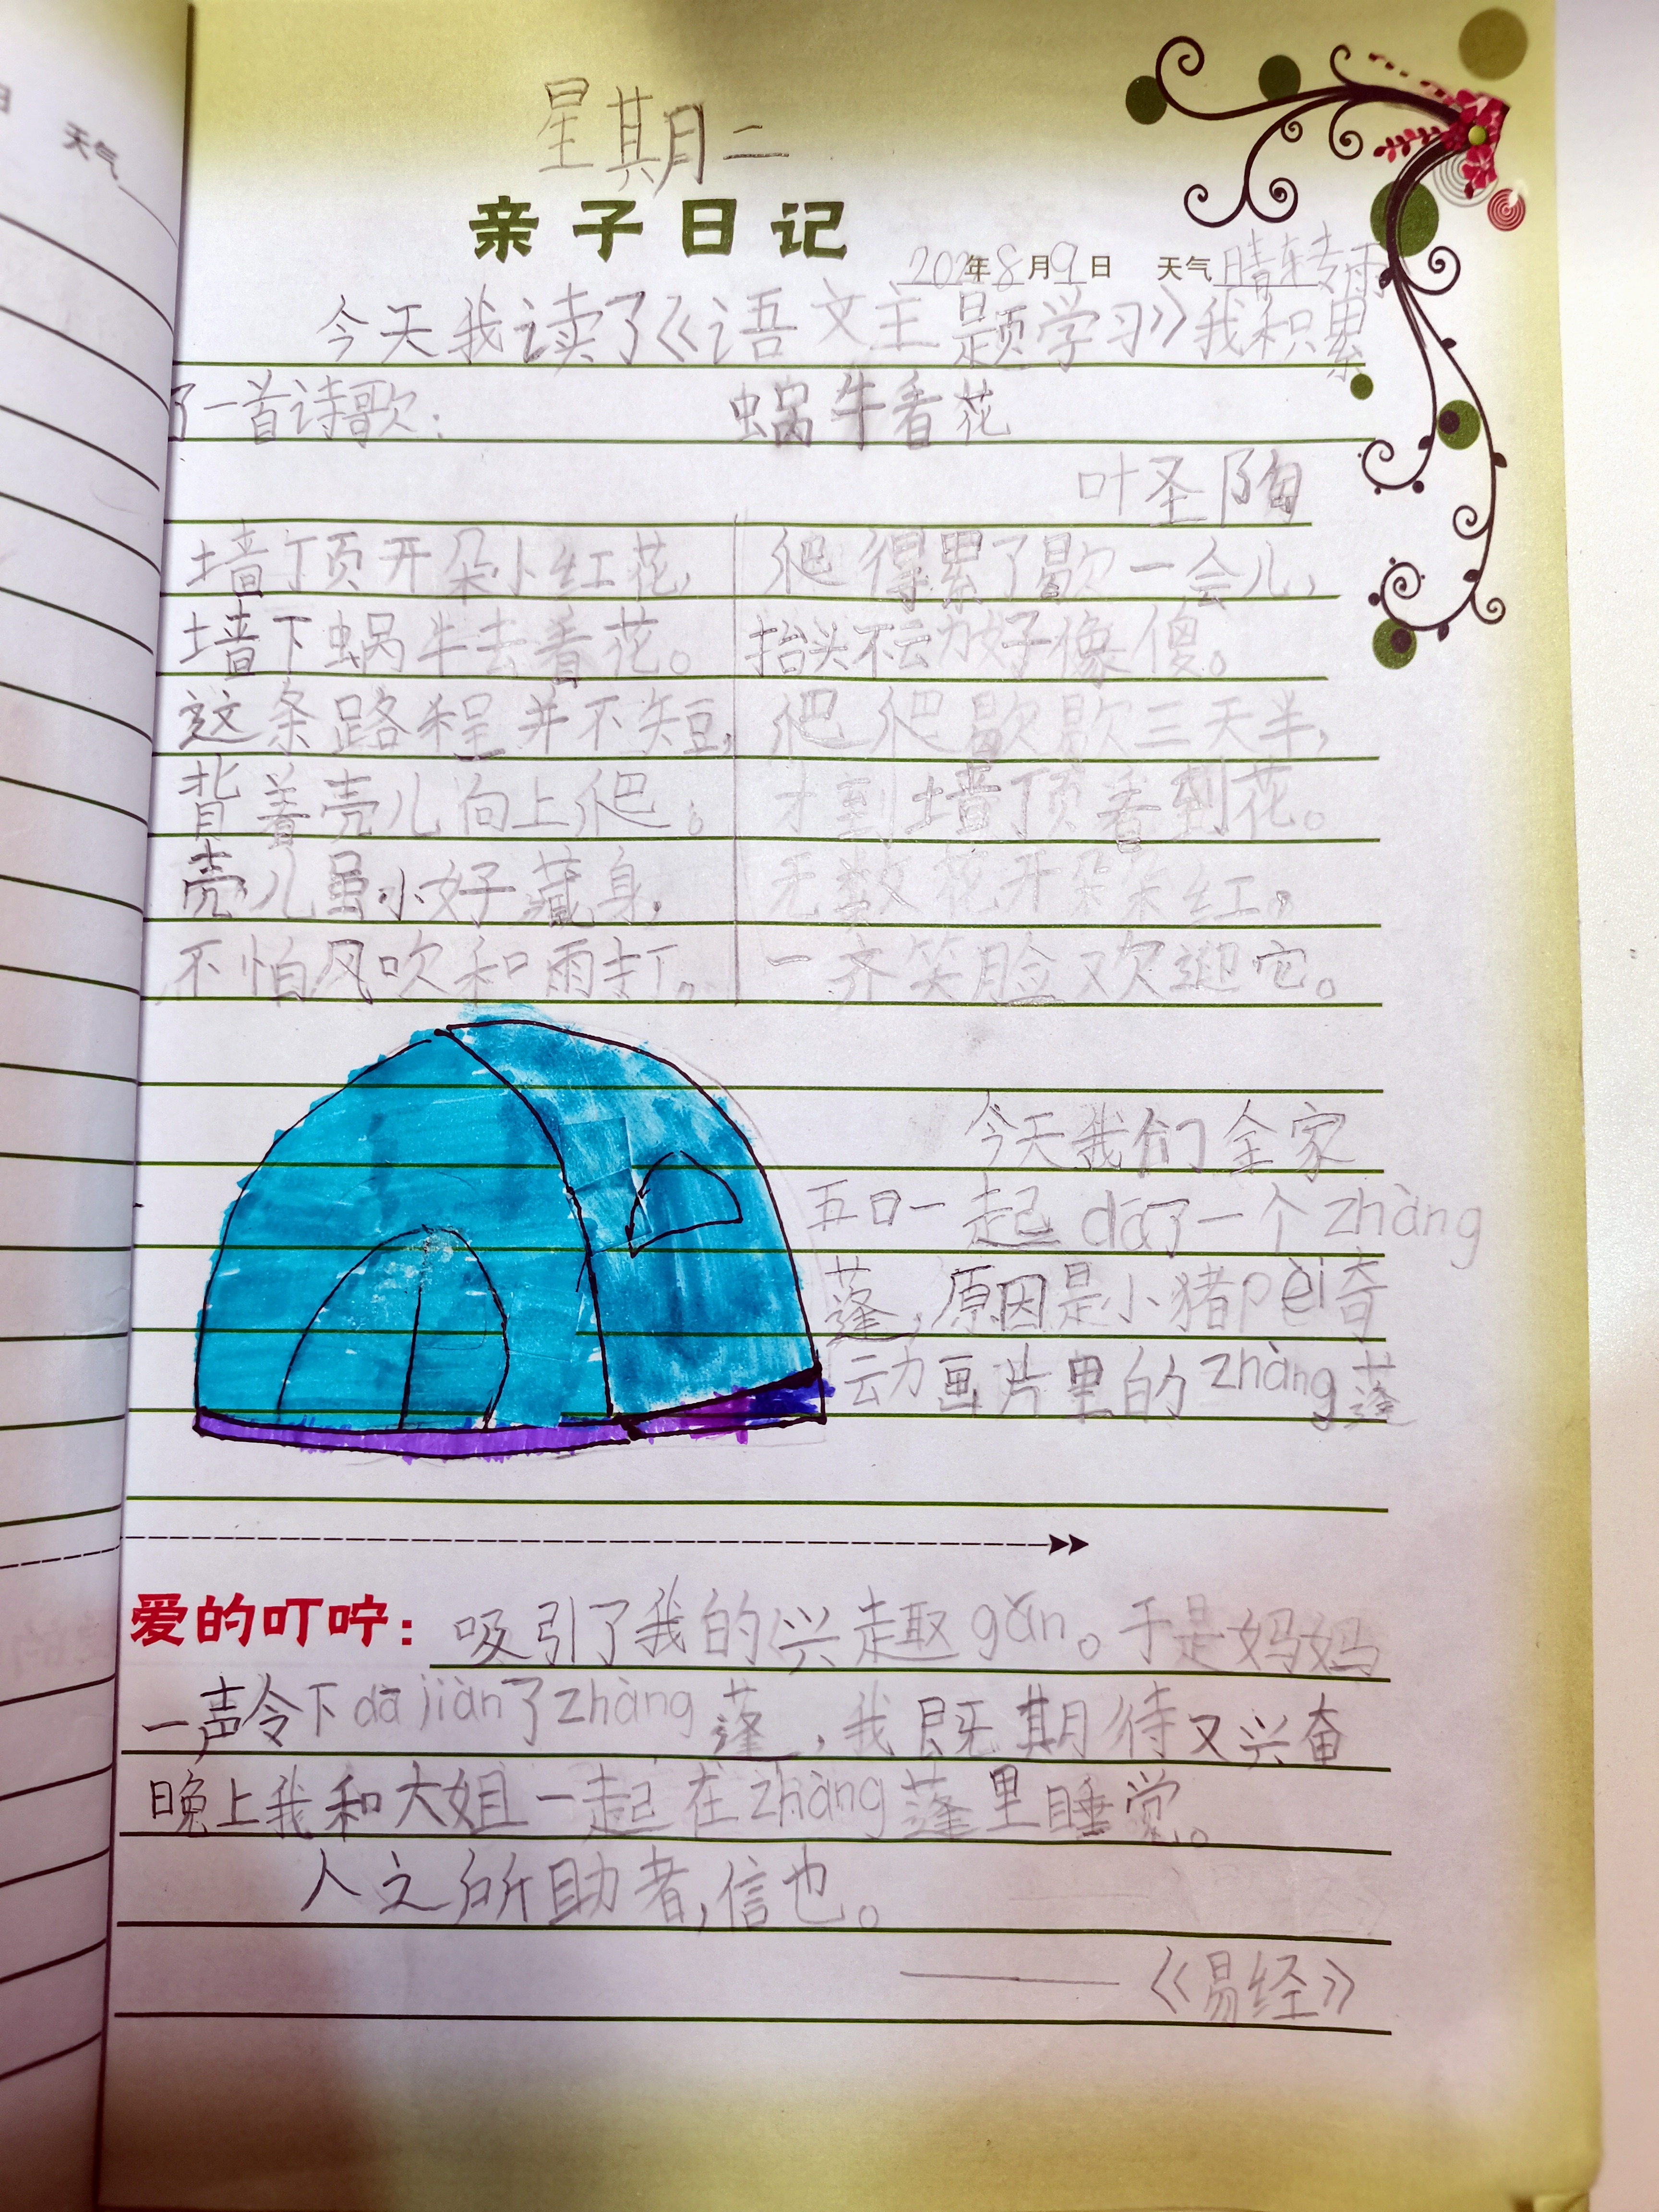 天气
星期二
亲子日记
202 年8月9日 天气晴转雨
今天我读了《语文主题学习》我积累
了一首诗歌： 蜗牛看花
叶圣陶
墙顶开朵小红花，
墙下蜗牛去看花。
这条路程并不短，
背着壳儿向上爬；
壳儿虽小好藏身，
不怕风吹和雨打。
爬得累了歇一会儿，
抬头不动好像傻。
爬爬歇歇三天半，
才到墙顶看到花。
无数花开朵朵红，
一齐笑脸欢迎它。
今天我们全家
五口一起dā了一个zhàng
蓬，原因是小猪pèi奇
动画片里的zhàng蓬
爱的叮咛：吸引了我的兴趣gǎn。于是妈妈
一声令下dā jiàn了zhàng蓬，我既期待又兴奋
晚上我和大姐一起在zhàng蓬里睡觉。
人之所助者，信也。
——《易经》